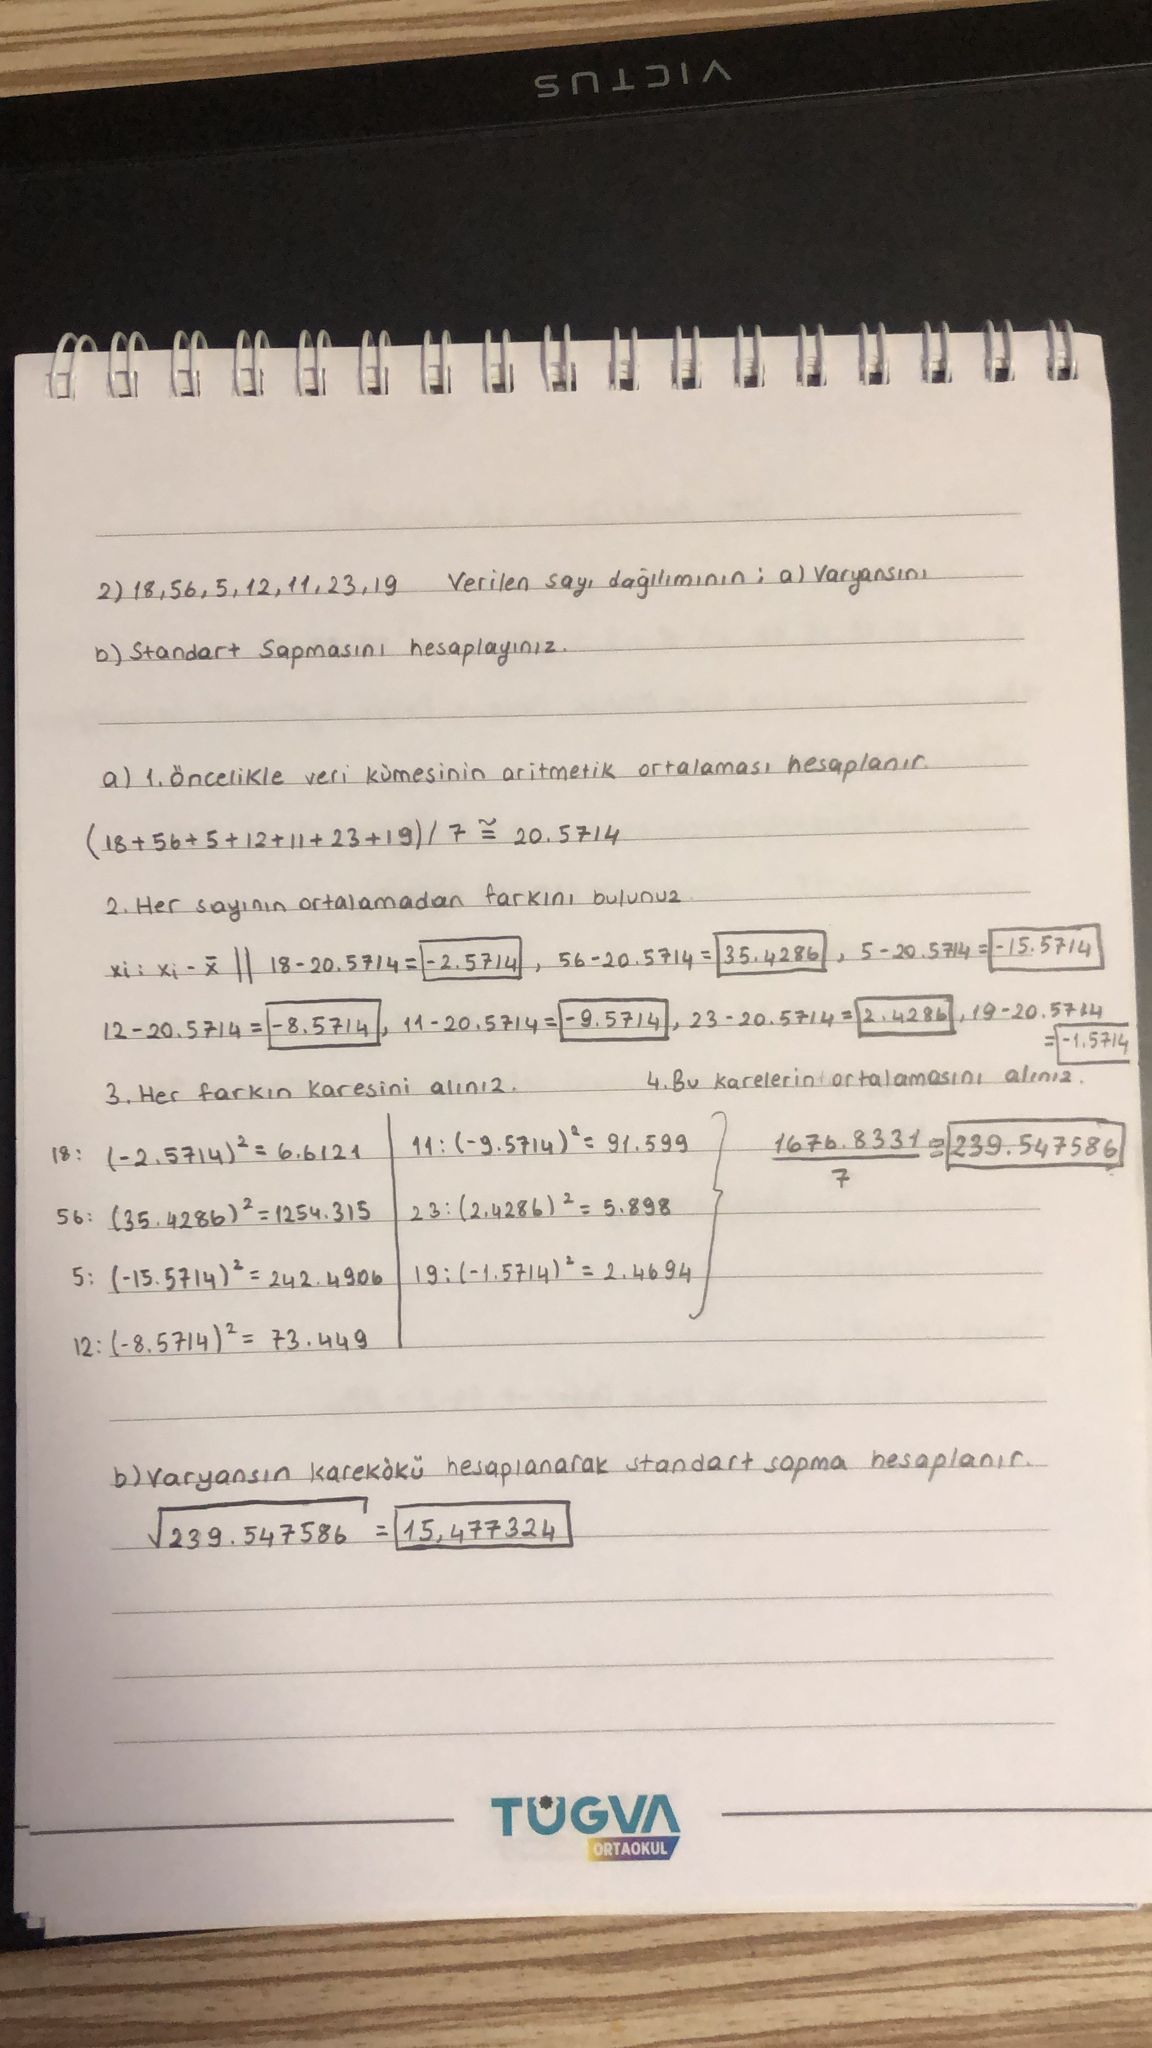 VICTUS
2) 18, 56, 5, 12, 11, 23, 19 Verilen sayı dağılımının ; a) Varyansını
b) Standart Sapmasını hesaplayınız.
a) 1. Öncelikle veri kümesinin aritmetik ortalaması hesaplanır.
(18+56+5+12+11+23+19) / 7 ≅ 20.5714
2. Her sayının ortalamadan farkını bulunuz
xi : xi - x̄ || 18-20.5714 = -2.5714, 56-20.5714 = 35.4286, 5-20.5714 = -15.5714
12-20.5714 = -8.5714, 11-20.5714 = -9.5714, 23-20.5714 = 2.4286, 19-20.5714
= -1.5714
3. Her farkın karesini alınız. 4. Bu karelerin ortalamasını alınız.
18: (-2.5714)² = 6.6121 11: (-9.5714)² = 91.599 1676.8331 / 7 = 239.547586
56: (35.4286)² = 1254.315 23: (2.4286)² = 5.898
5: (-15.5714)² = 242.4906 19: (-1.5714)² = 2.4694
12: (-8.5714)² = 73.449
b) Varyansın karekökü hesaplanarak standart sapma hesaplanır.
√239.547586 = 15,477324
TÜGVA
ORTAOKUL